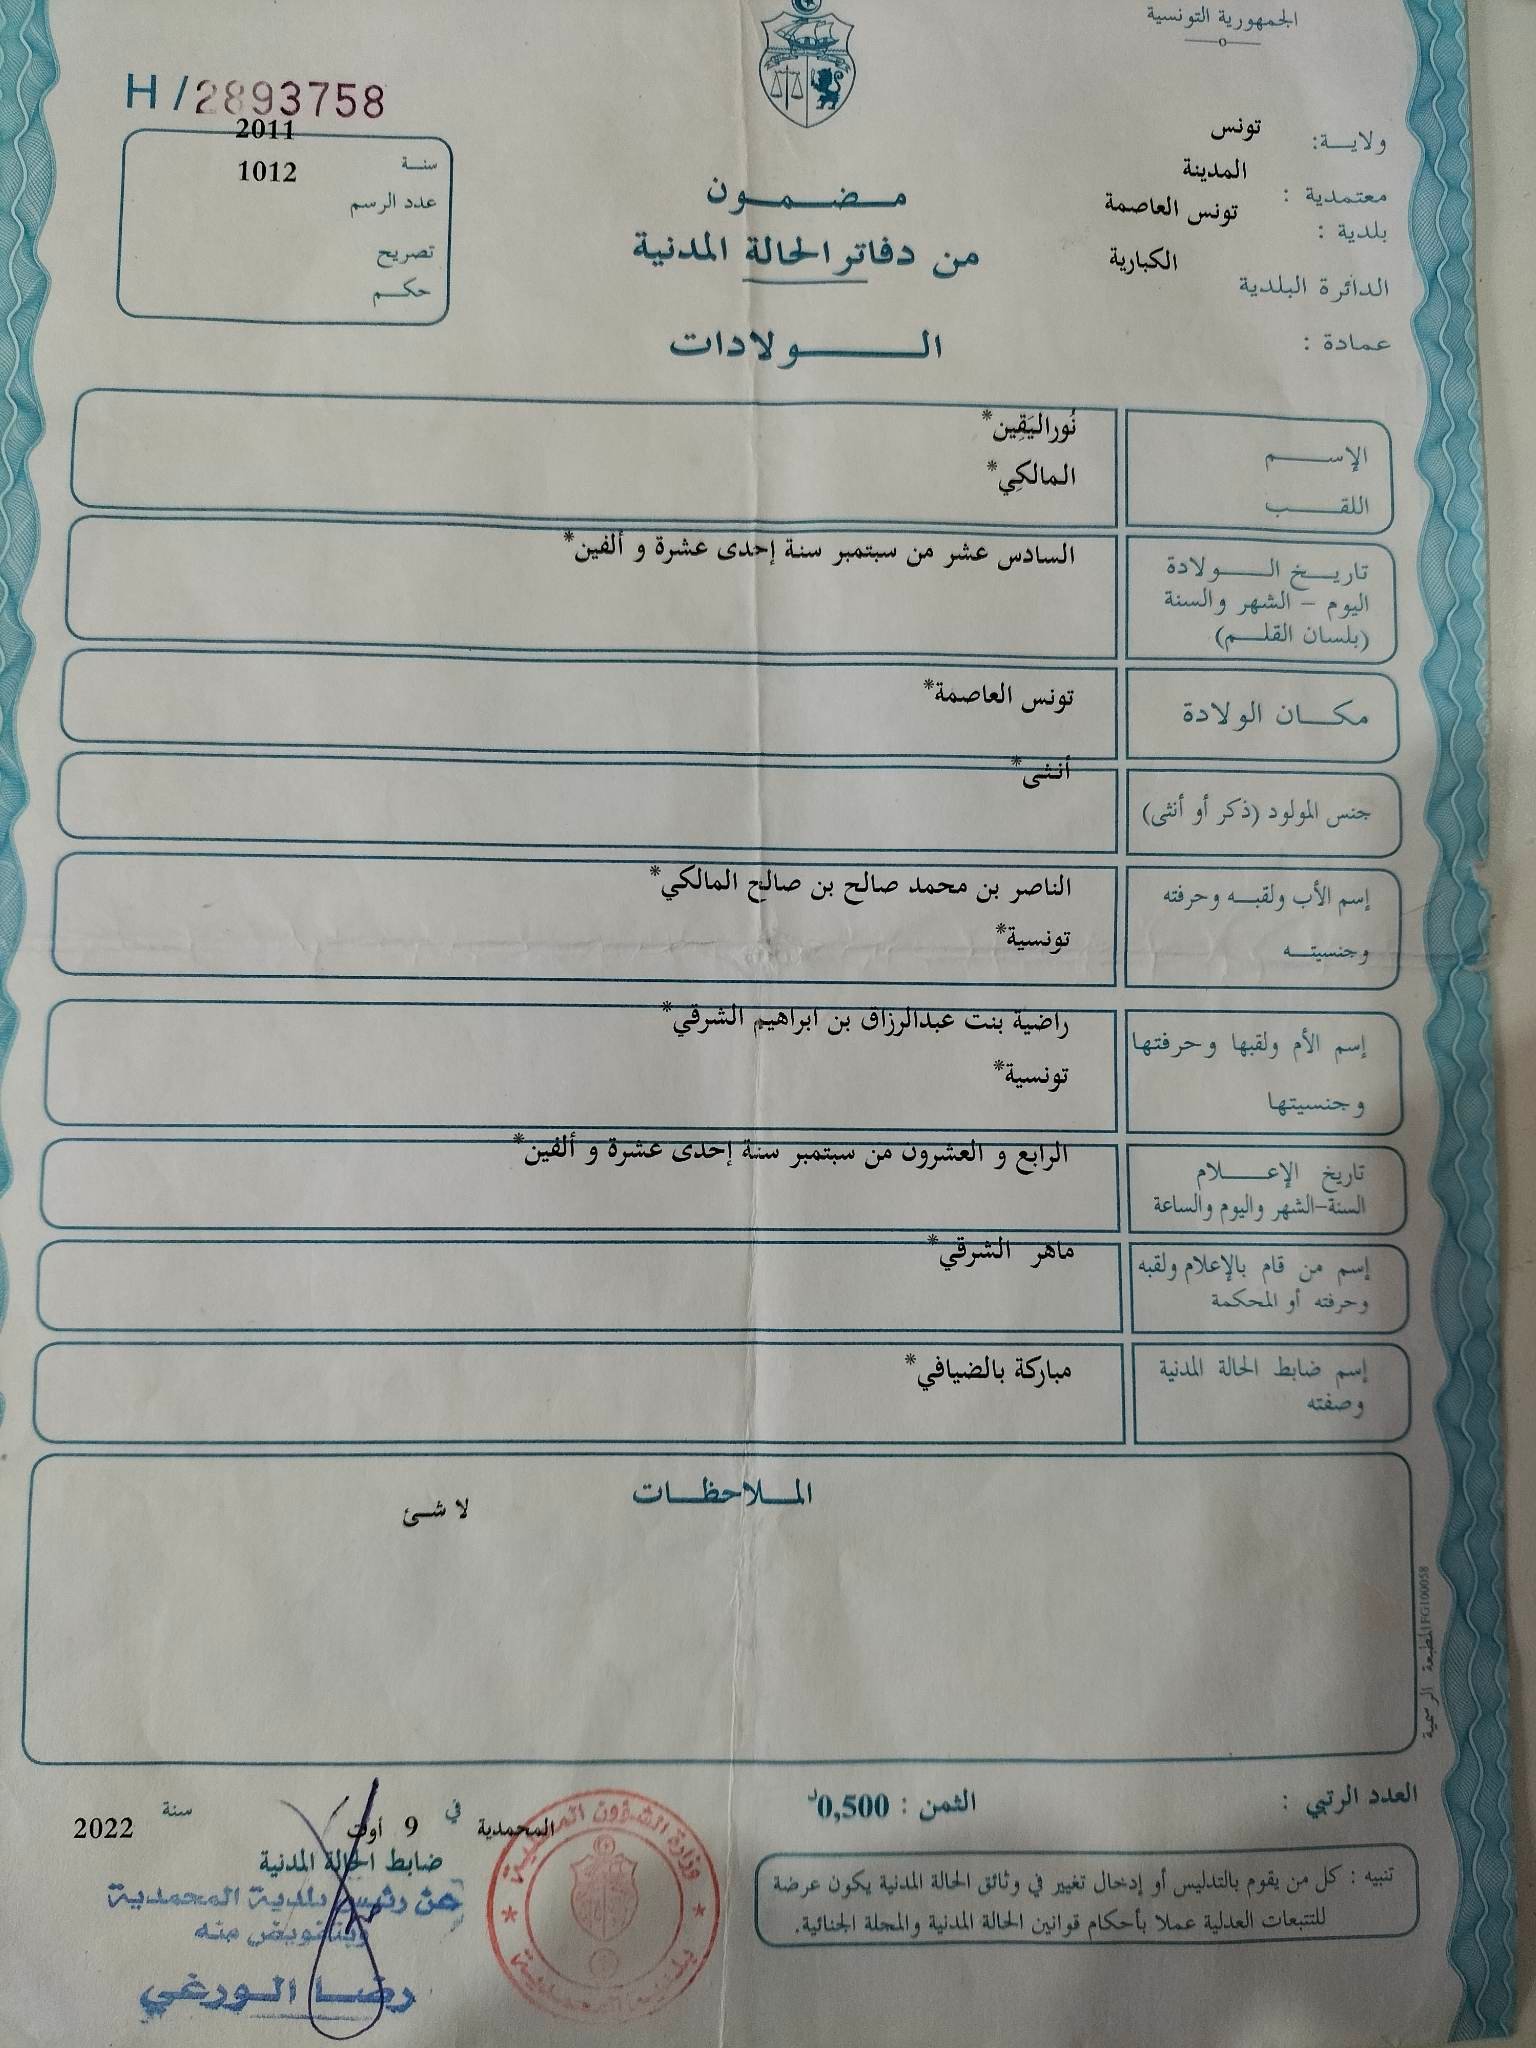 الجمهورية التونسية
H/2893758
ولايـة: تونس
معتمدية : المدينة
بلدية : تونس العاصمة
الدائرة البلدية الكبارية
عمادة :
سنـة 2011
عدد الرسم 1012
تصريح
حكـم
مـضـمـون
من دفاتر الحالة المدنية
الـولادات
الإسـم نُوراليَقِين*
اللقـب المالكِي*
تاريـخ الـولادة
اليوم - الشهر والسنة
(بلسان القلـم)
السادس عشر من سبتمبر سنة إحدى عشرة و ألفين*
مكـان الولادة تونس العاصمة*
جنس المولود (ذكر أو أنثى) أنثى*
إسم الأب ولقبـه وحرفته الناصر بن محمد صالح بن صالح المالكي*
وجنسيتـه تونسية*
إسم الأم ولقبها وحرفتها راضية بنت عبدالرزاق بن ابراهيم الشرقي*
وجنسيتها تونسية*
تاريخ الإعـلام الرابع و العشرون من سبتمبر سنة إحدى عشرة و ألفين*
السنة-الشهر واليوم والساعة
إسم من قام بالإعلام ولقبه ماهر الشرقي*
وحرفته أو المحكمة
إسم ضابط الحالة المدنية مباركة بالضيافي*
وصفته
المـلاحظـات
لا شئ
المطبعة الرسمية FG100058
العدد الرتبي :
الثمن : 0,500د
المحمدية في 9 أوت سنة 2022
ضابط الحالة المدنية
عن رئيس بلدية المحمدية
وبتفويض منه
رضـا الـورغي
وزارة الشؤون المحلية
بلدية المحمدية
تنبيه : كل من يقوم بالتدليس أو إدخال تغيير في وثائق الحالة المدنية يكون عرضة
للتتبعات العدلية عملا بأحكام قوانين الحالة المدنية والمجلة الجنائية.